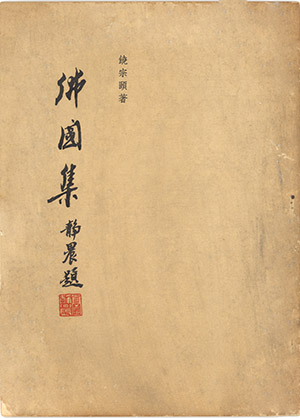 饒宗頤著
佛國集
靜晨題